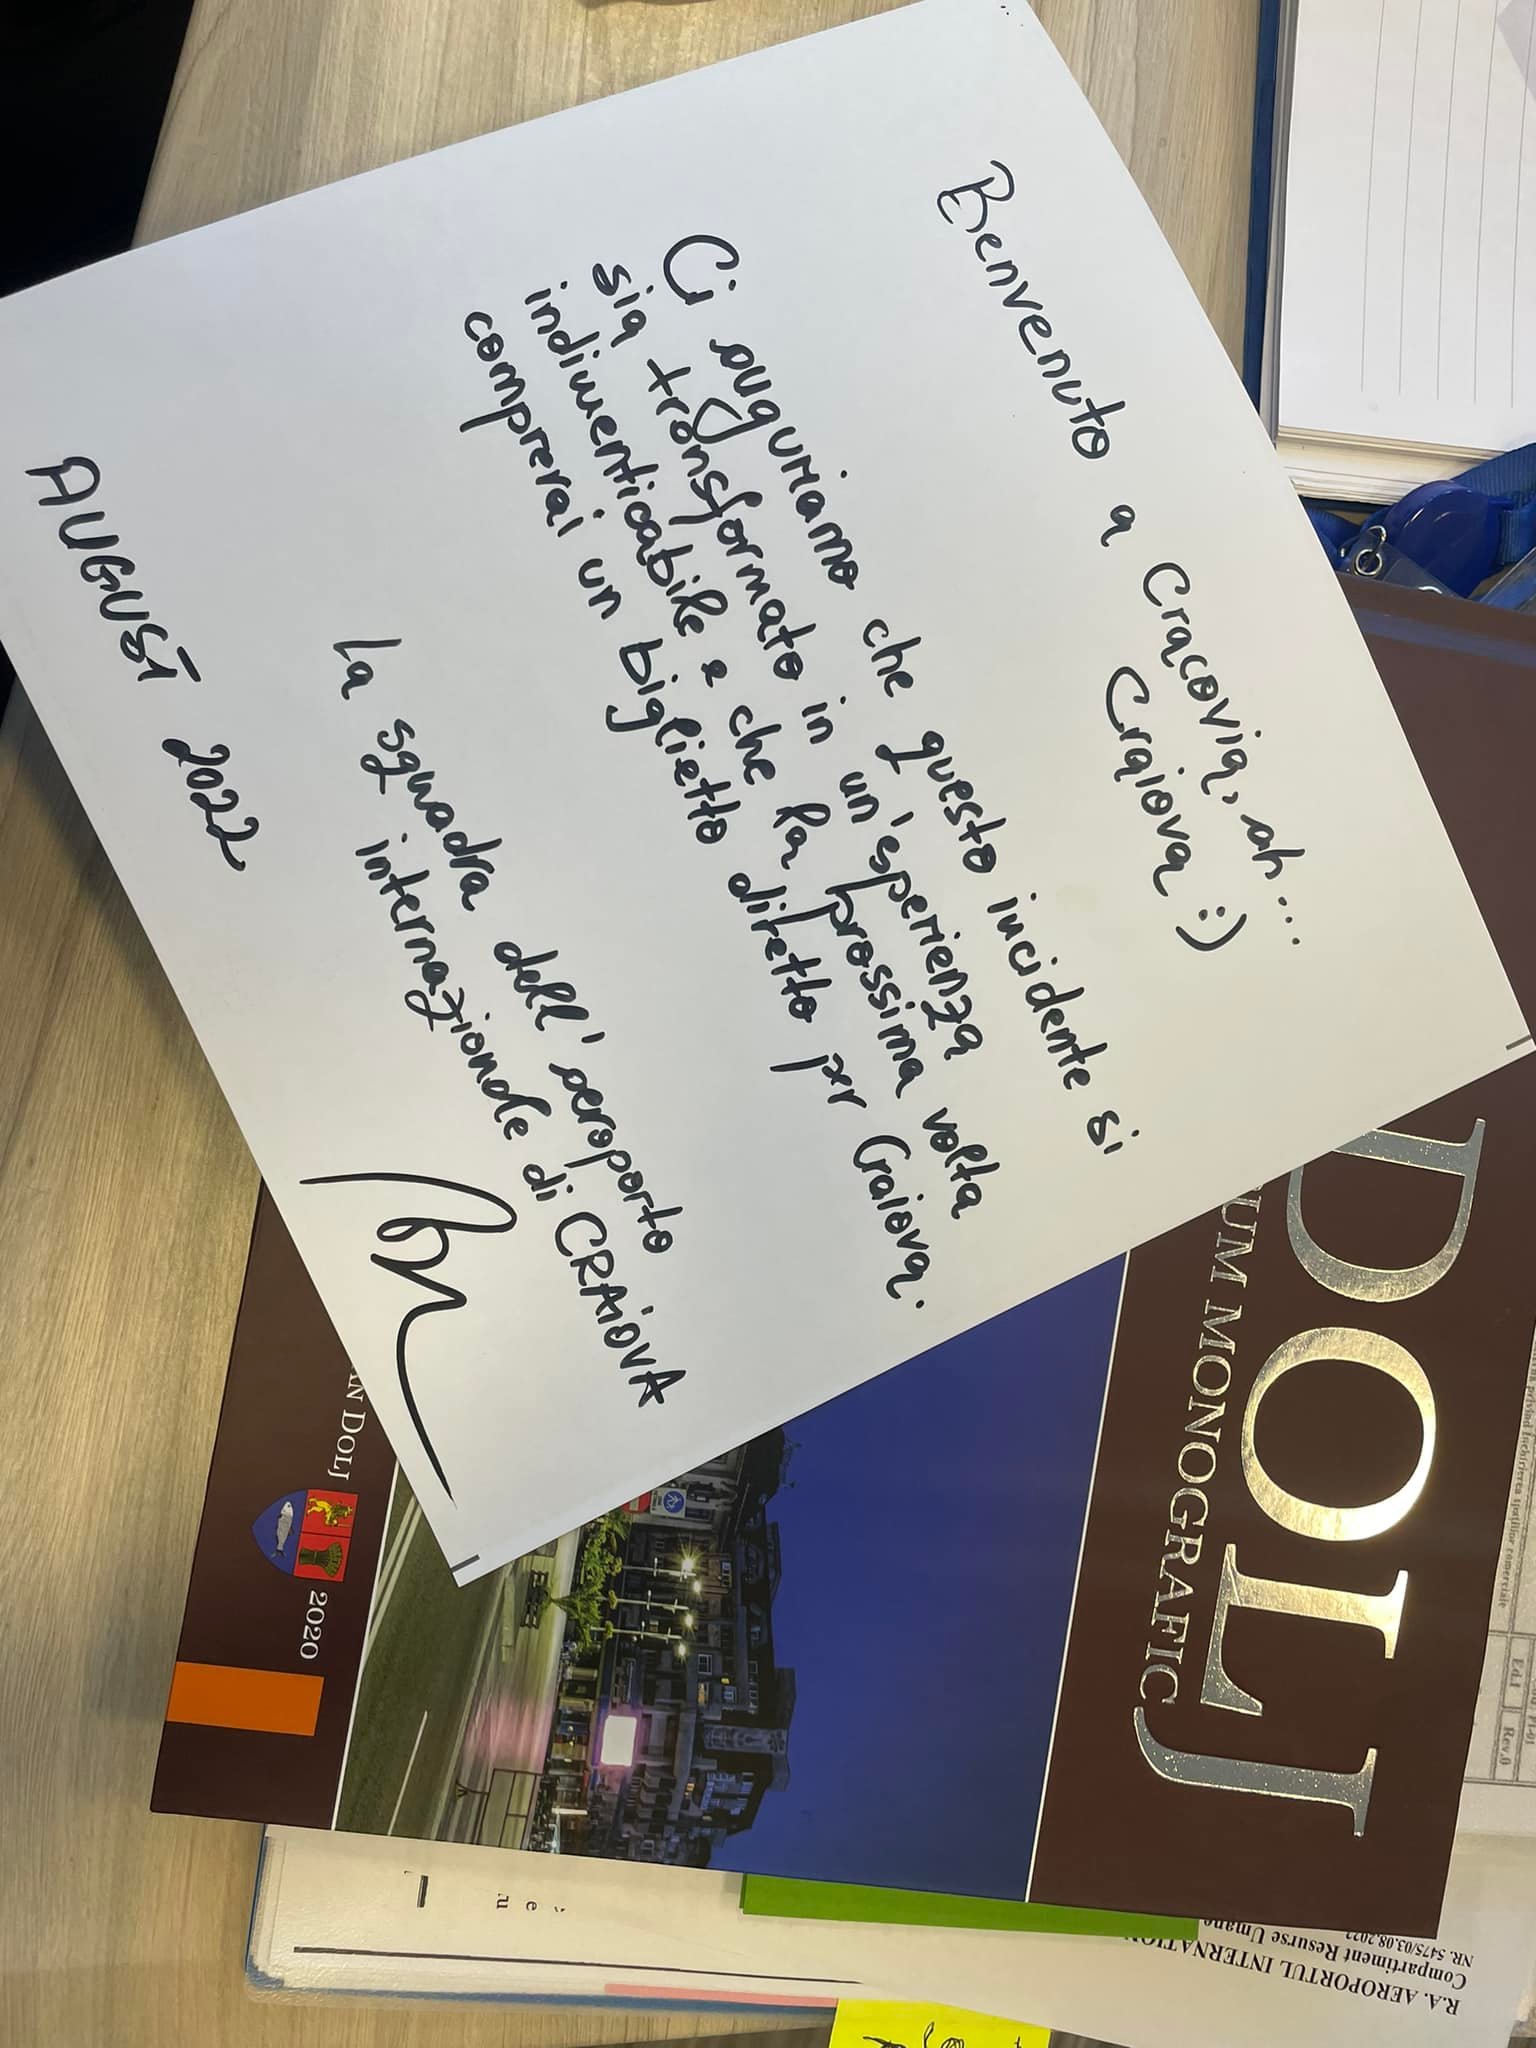 Benvenuto a Cracovia, ah...
Craiova :)
Ci auguriamo che questo incidente si
sia transformato in un'esperienza
indimenticabile e che la prossima volta
comprerai un biglietto diretto per Craiova.
La squadra dell'aeroporto
internazionale di CRAIOVA
AUGUST 2022
DOLJ
IUM MONOGRAFIC
AN DOLJ
2020
R.A. AEROPORTUL INTERNATION
Compartiment Resurse Umane
NR. 5475/03.08.2022
privind închirierea spațiilor comerciale
Ed.1
Rev.0